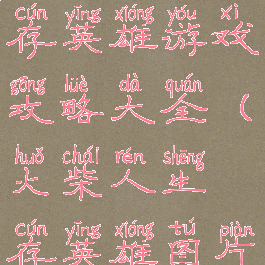 cún yīng xióng yóu xì
存英雄游戏
gōng lüè dà quán
攻略大全（
huǒ chái rén shēng
火柴人生
cún yīng xióng tú piàn
存英雄图片